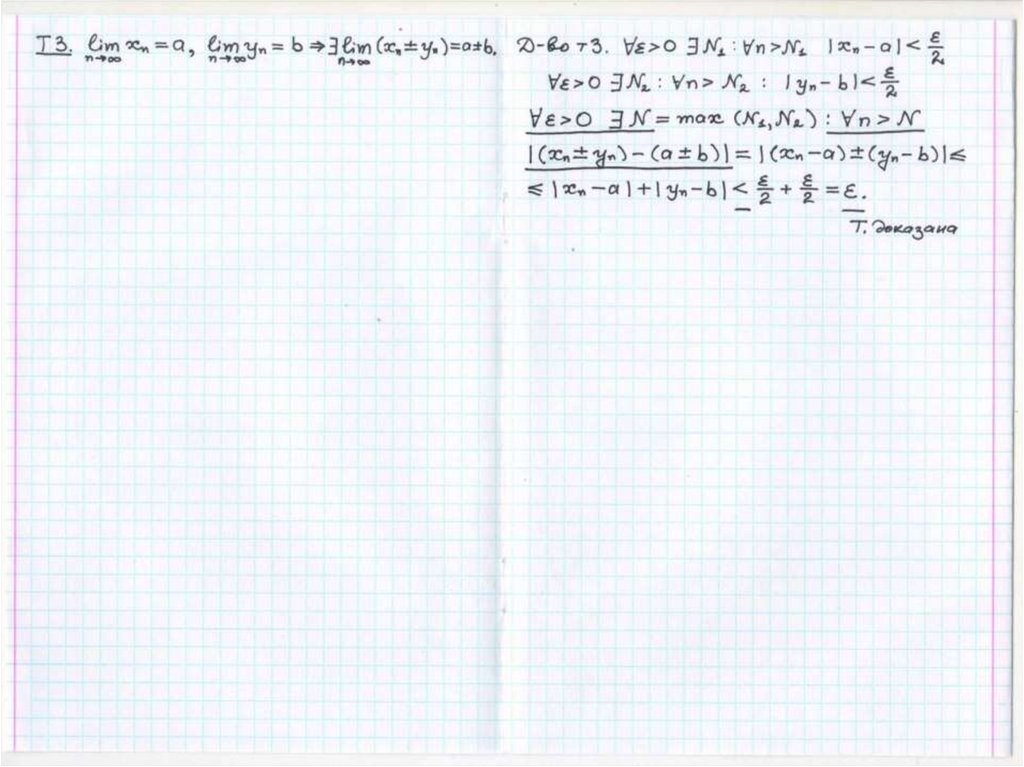 Т 3. lim xₙ = a, lim yₙ = b ⇒ ∃ lim (xₙ ± yₙ) = a ± b.
n→∞ n→∞ n→∞
Д-во т 3. ∀ε>0 ∃N₁ : ∀n>N₁ |xₙ - a| < ε/2
∀ε>0 ∃N₂ : ∀n > N₂ : |yₙ - b| < ε/2
∀ε>0 ∃N = max (N₁, N₂) : ∀n > N
|(xₙ ± yₙ) - (a ± b)| = |(xₙ - a) ± (yₙ - b)| ≤
≤ |xₙ - a| + |yₙ - b| < ε/2 + ε/2 = ε.
Т. доказана